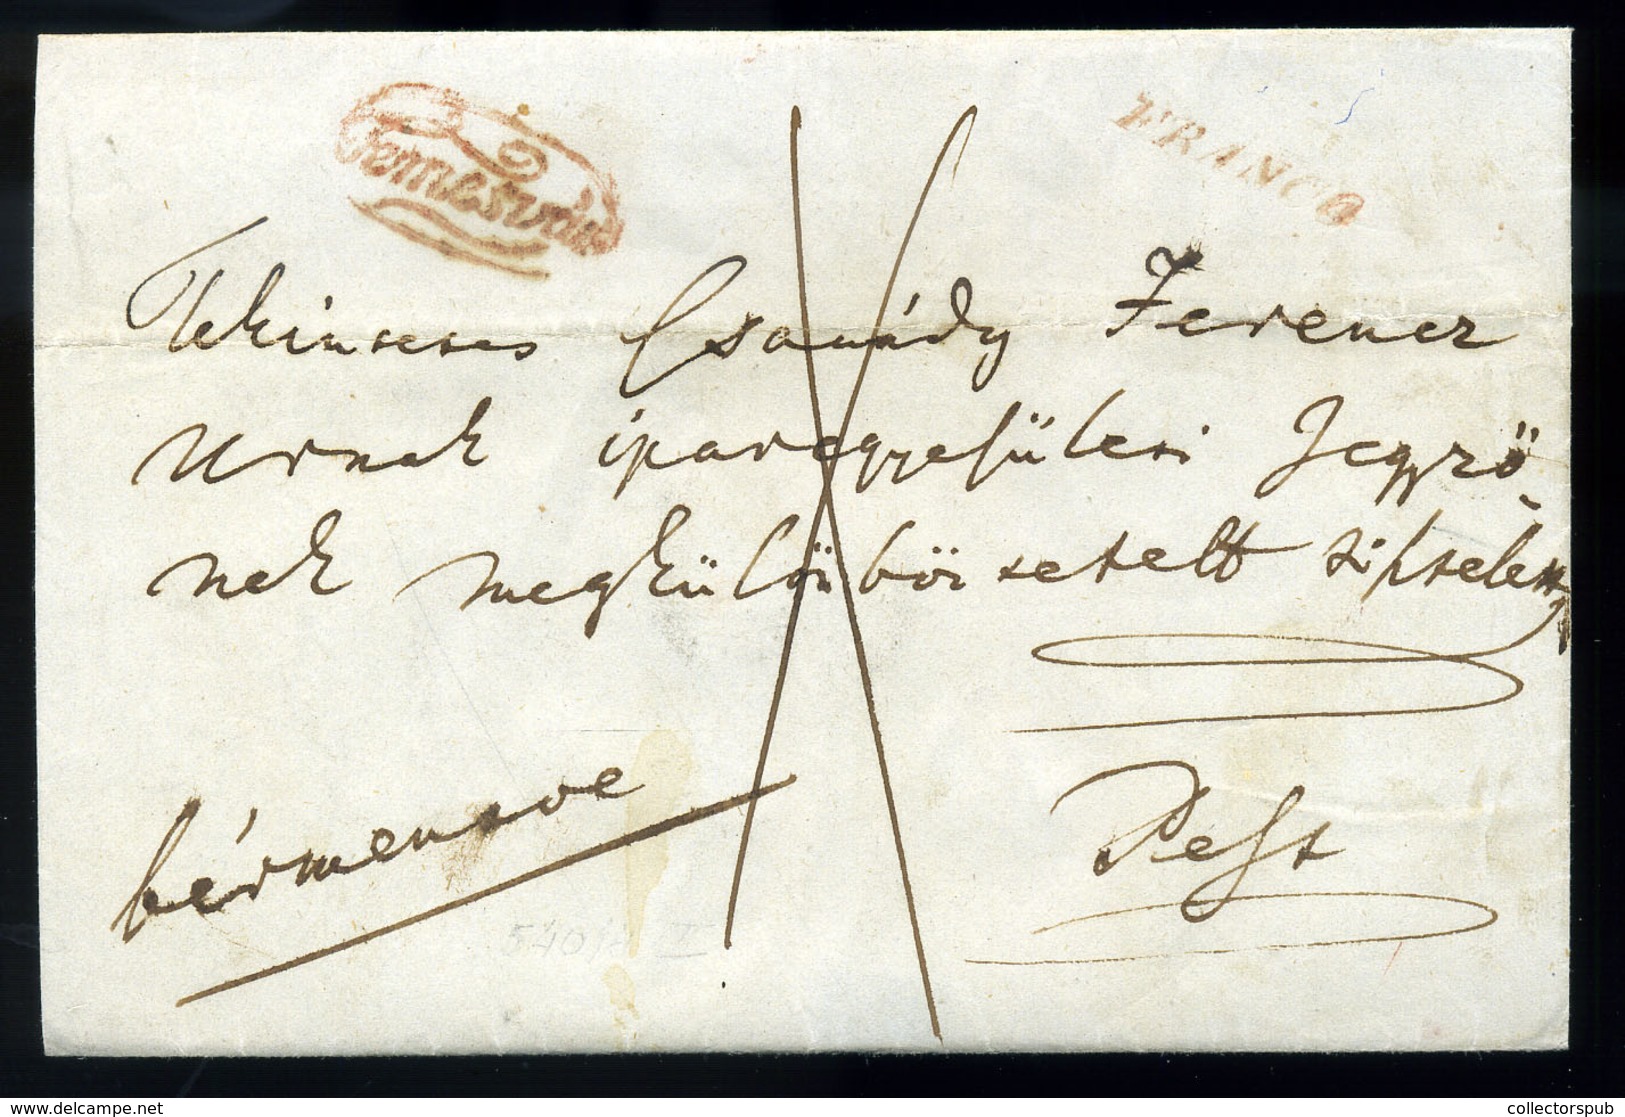 Temesvár
FRANCO
Tekintetes Csanády Ferencz
Urnak iparegyesületi Jegyző
nek megkülömböztetett tisztelettel
Pest
bérmentve
collectorspub